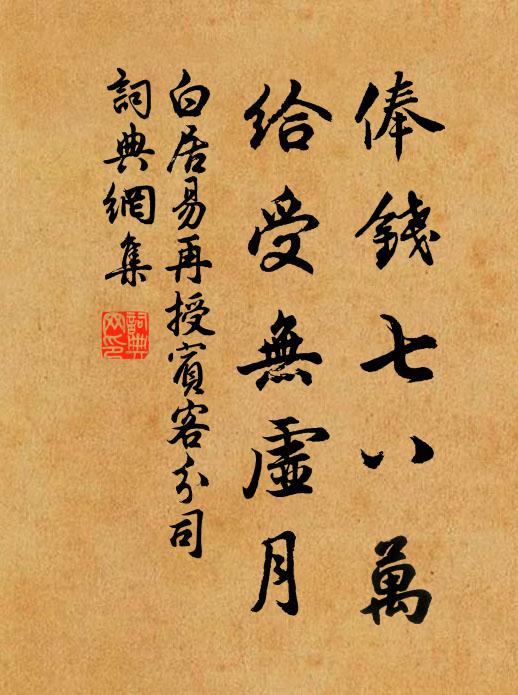 俸錢七八萬
給受無虛月
白居易再授賓客分司
詞典網集
詞典網印